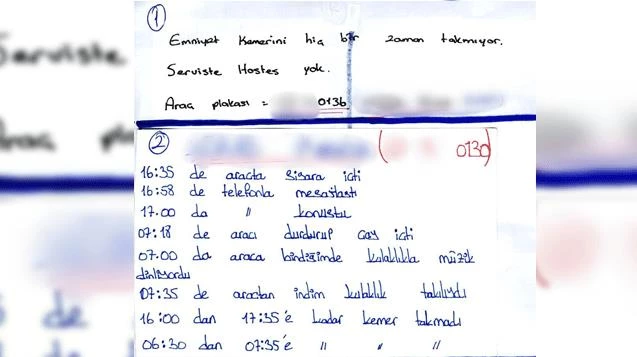 1
Emniyet Kemerini hiç bir zaman takmıyor.
Serviste Hostes yok.
Araç plakası = 0136
2
(0130)
16:35 de araçta sigara içti
16:58 de telefonla mesajlaştı
17.00 da " konuştu
07:18 de aracı durdurup çay içti
07.00 da araca bindiğimde kulaklıkla müzik
dinliyordu
07:35 de araçtan indim kulaklık takılıydı
16:00 dan 17:35'e kadar kemer takmadı
06:30 dan 07:35'e " " "